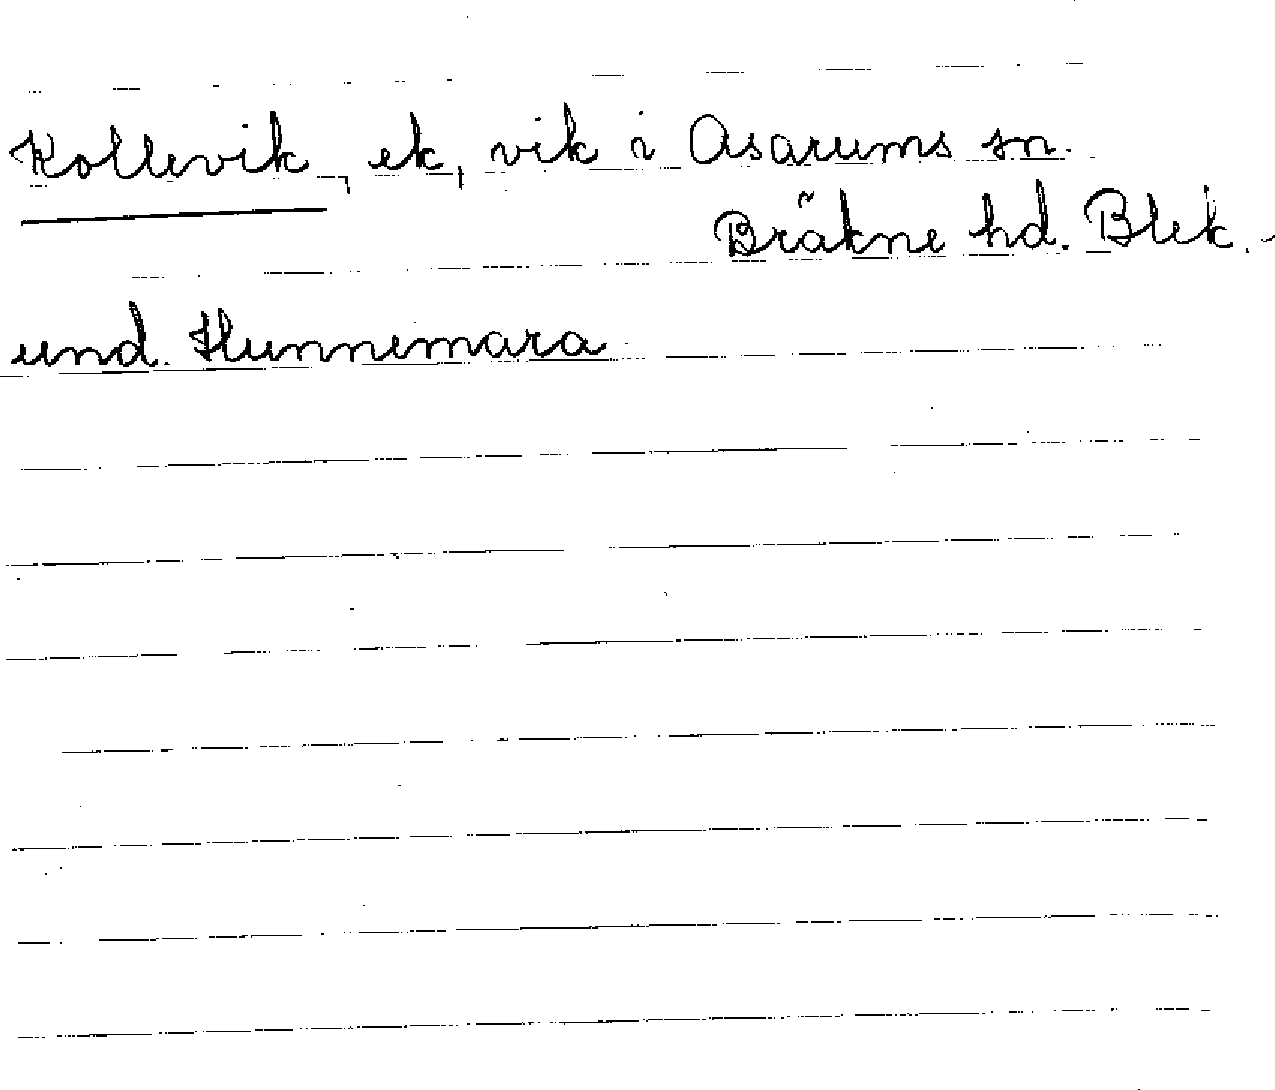 Kollevik, ek, vik i Asarums sn.
Bräkne hd. Blek.
und. Hunnemara